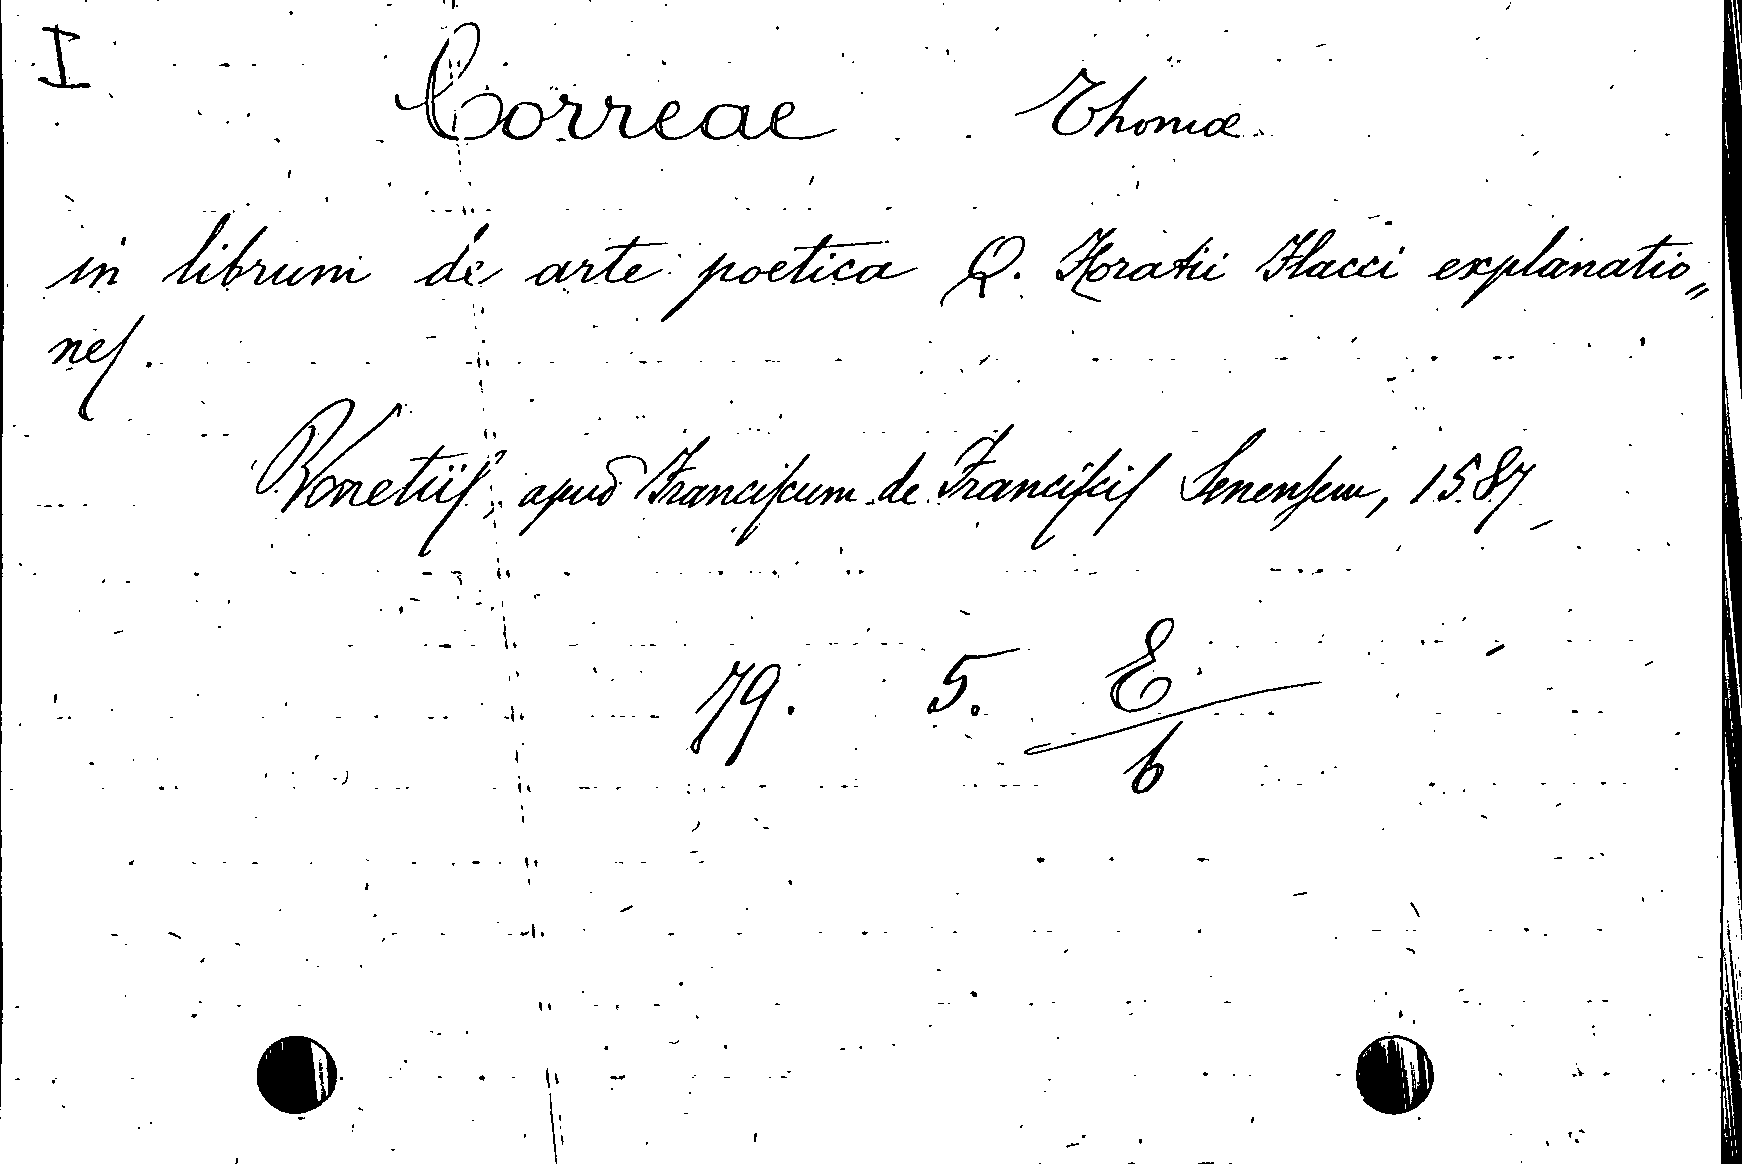 I
Correae Thomæ
in librum de arte poetica Q. Horatii Flacci explanatio„
nes.
Venetiis, apud Franciscum de Franciscis Senensem, 1587
79. 5. E
b